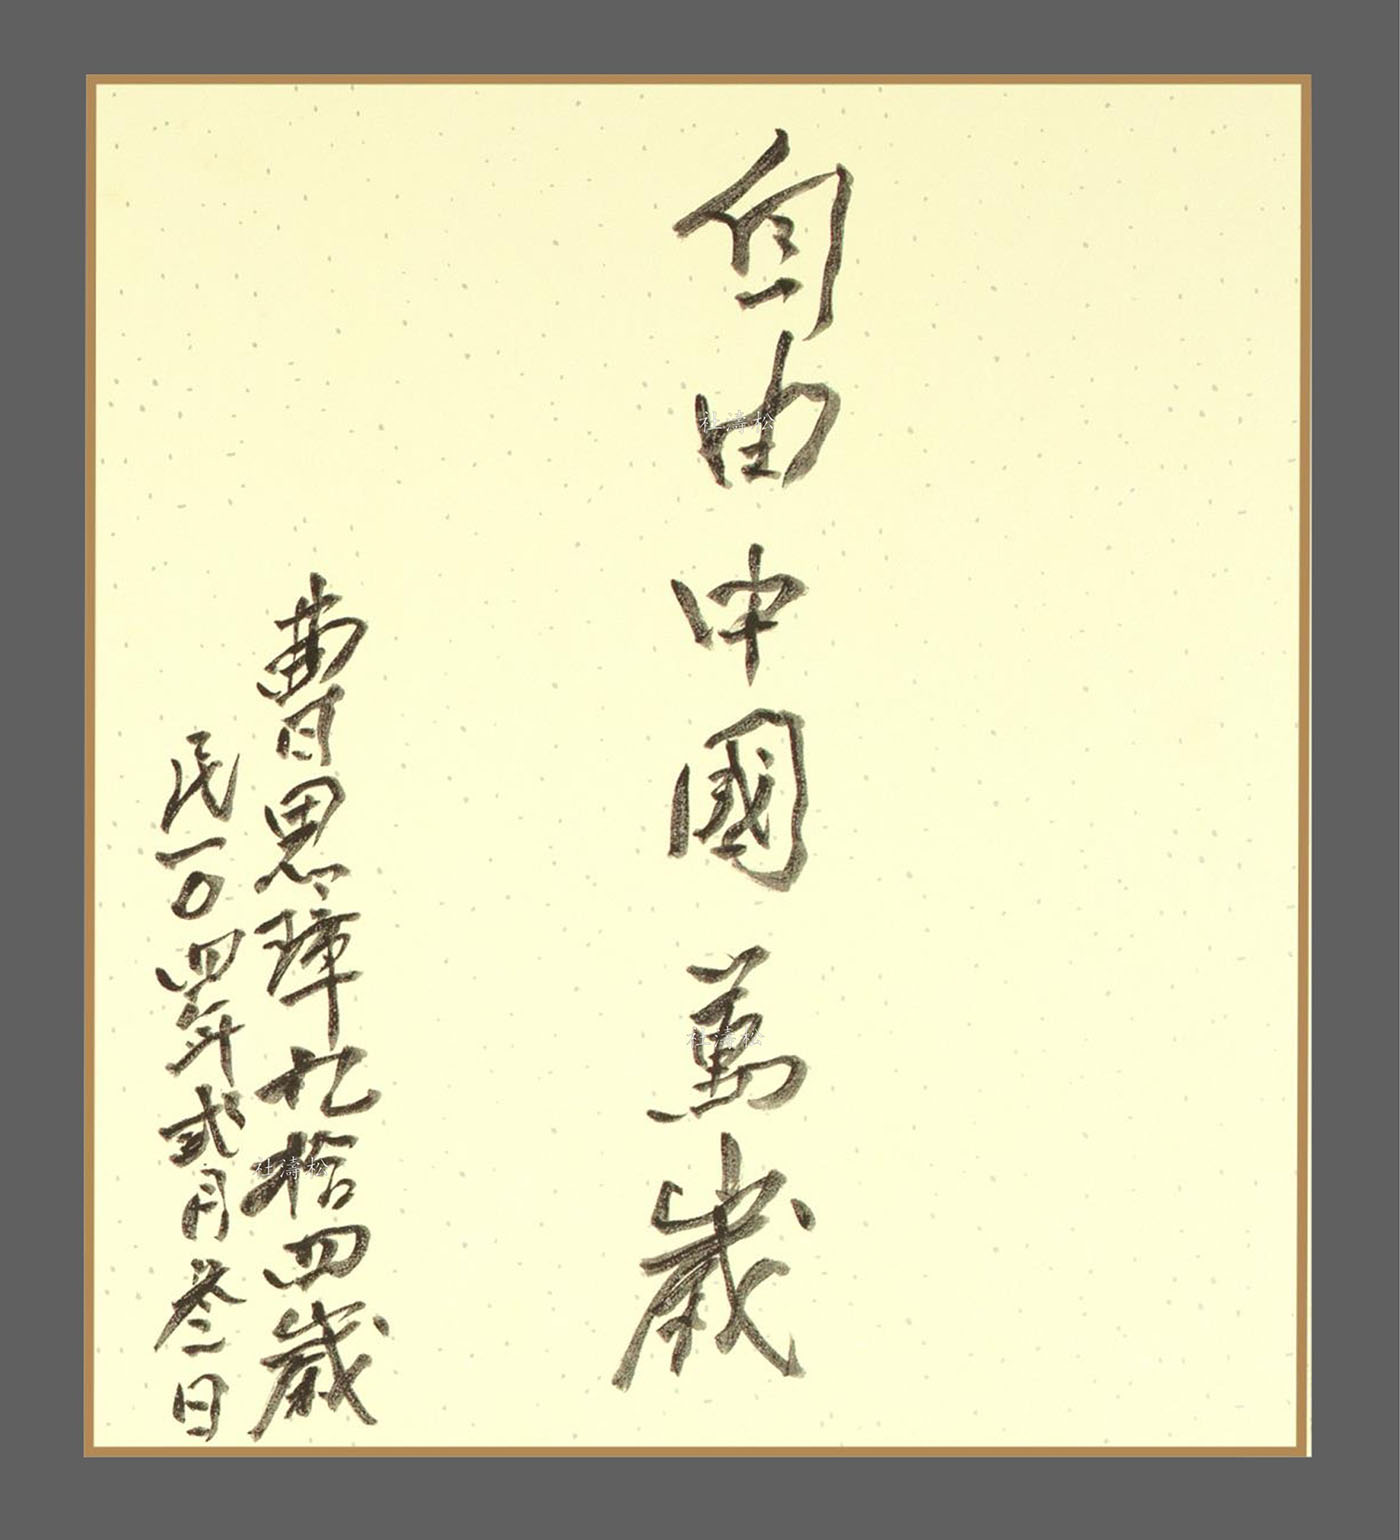 自由中國萬歲
曹思璋九拾四歲
民一〇四年貳月叁日
杜濤松
杜濤松
杜濤松